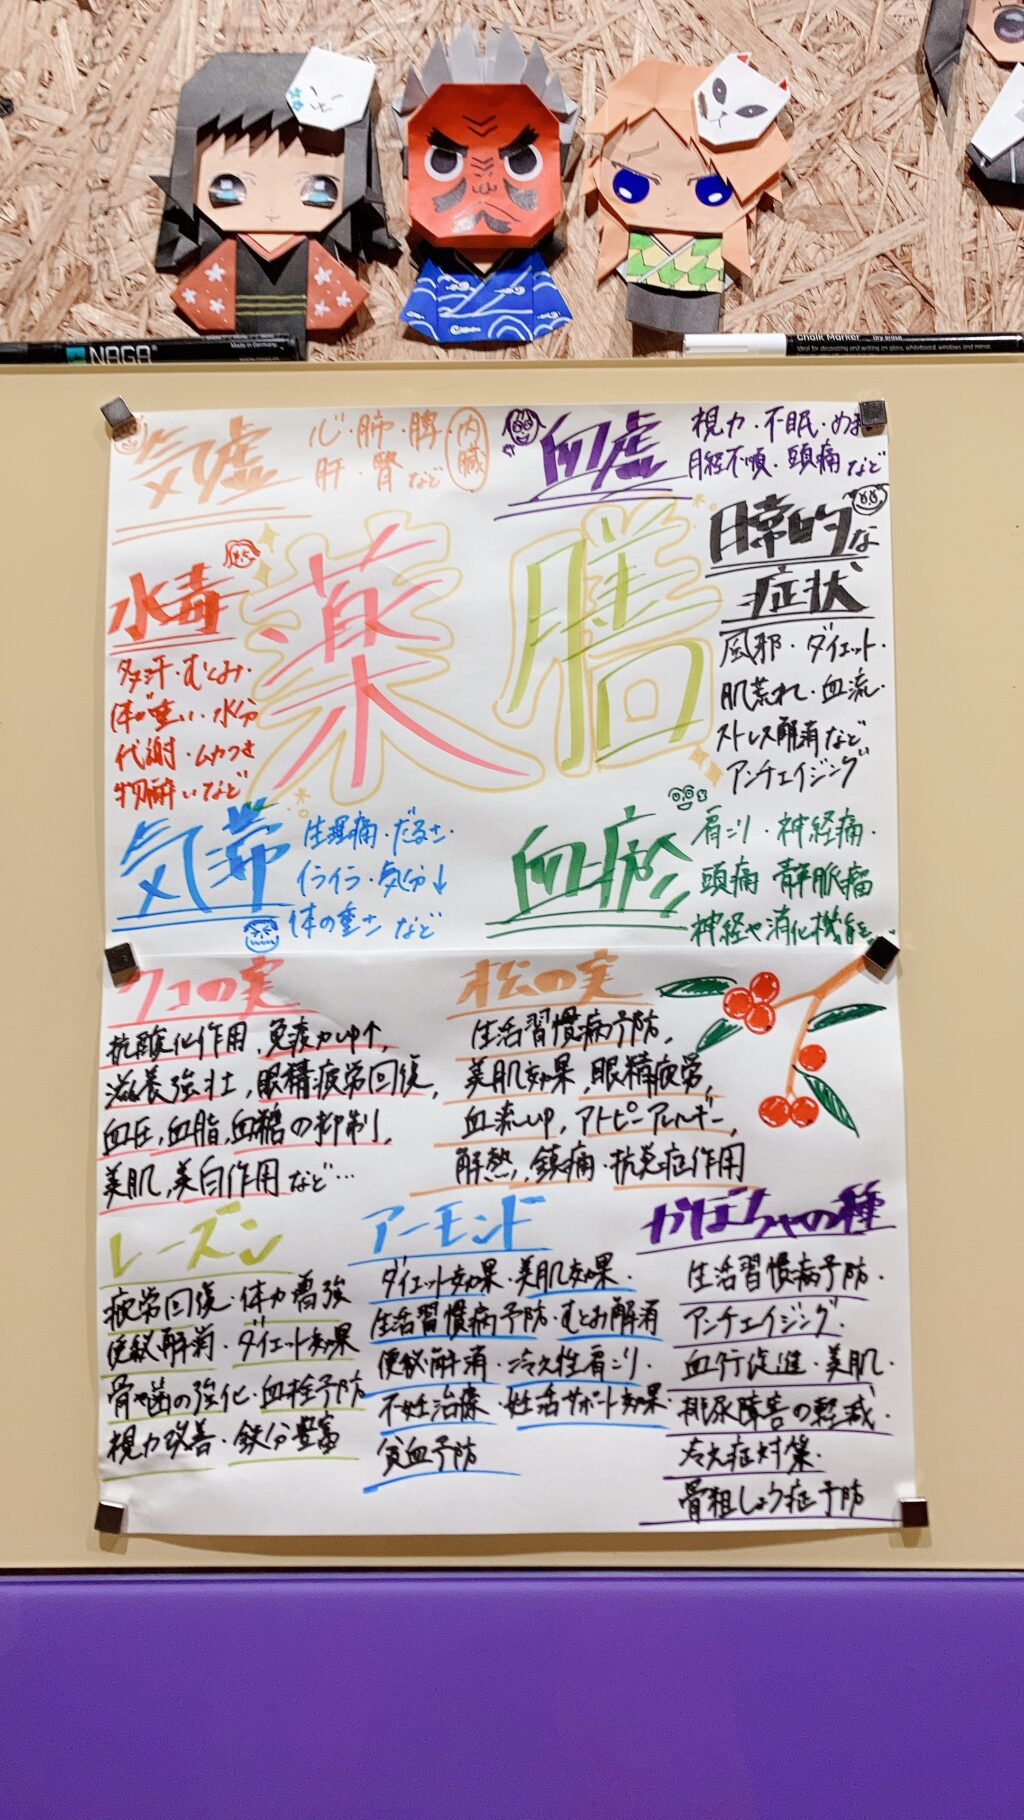 NAGA
Made in Germany
Chalk Marker Dry erase
Ideal for decorating and writing on glass, whiteboard, windows and mirror.
気虚
心・肺・脾
肝・腎など
内臓
血虚
視力・不眠・めま
月経不順・頭痛など
薬膳
日常的な
症状
風邪・ダイエット・
肌荒れ・血流・
ストレス解消など
アンチエイジング
水毒
多汗・むくみ・
体が重い・水分
代謝・ムカつき
物酔いなど
気滞
生理痛・だるさ・
イライラ・気分↓
体の重さなど
血瘀
肩こり・神経痛・
頭痛 静脈瘤
神経や消化機能
クコの実
抗酸化作用,免疫力up↑,
滋養強壮,眼精疲労回復,
血圧,血脂,血糖の抑制,
美肌,美白作用など…
松の実
生活習慣病予防,
美肌効果,眼精疲労,
血流up,アトピーアレルギー,
解熱,鎮痛・抗炎症作用
レーズン
疲労回復・体力増強
便秘解消・ダイエット効果
骨や歯の強化・血栓予防
視力改善・鉄分豊富
アーモンド
ダイエット効果・美肌効果・
生活習慣病予防・むくみ解消
便秘解消・冷え性肩こり・
不妊治療・妊活サポート効果・
貧血予防
かぼちゃの種
生活習慣病予防・
アンチエイジング・
血行促進・美肌・
排尿障害の軽減・
冷え症対策・
骨粗しょう症予防